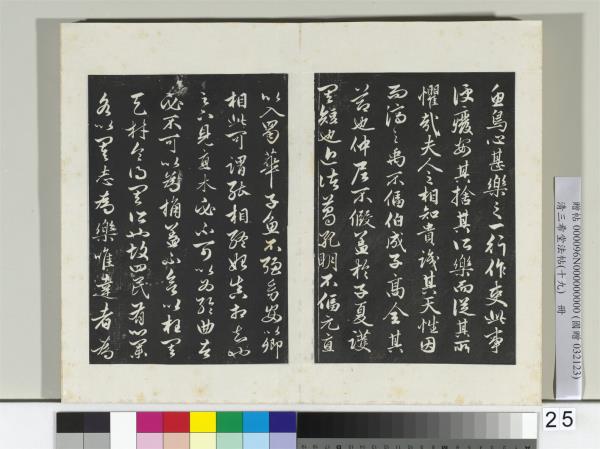 魚鳥心甚樂之一行作吏此事
便廢安能捨其所樂而從其所
懼哉夫人之相知貴識其天性因
而濟之禹不偪伯成子高全其
節也仲尼不假蓋於子夏護
其短也近諸葛孔明不偪元直
以入蜀華子魚不強幼安以卿
相此可謂能相終始真相知也
足下見直木必不可以為輪曲者
必不可以為桷蓋不欲以枉其
天才令得其所也故四民有業
各以得志為樂唯達者為
贈帖 000096N000000000 (國贈 032123)
清三希堂法帖(十九) 冊
25